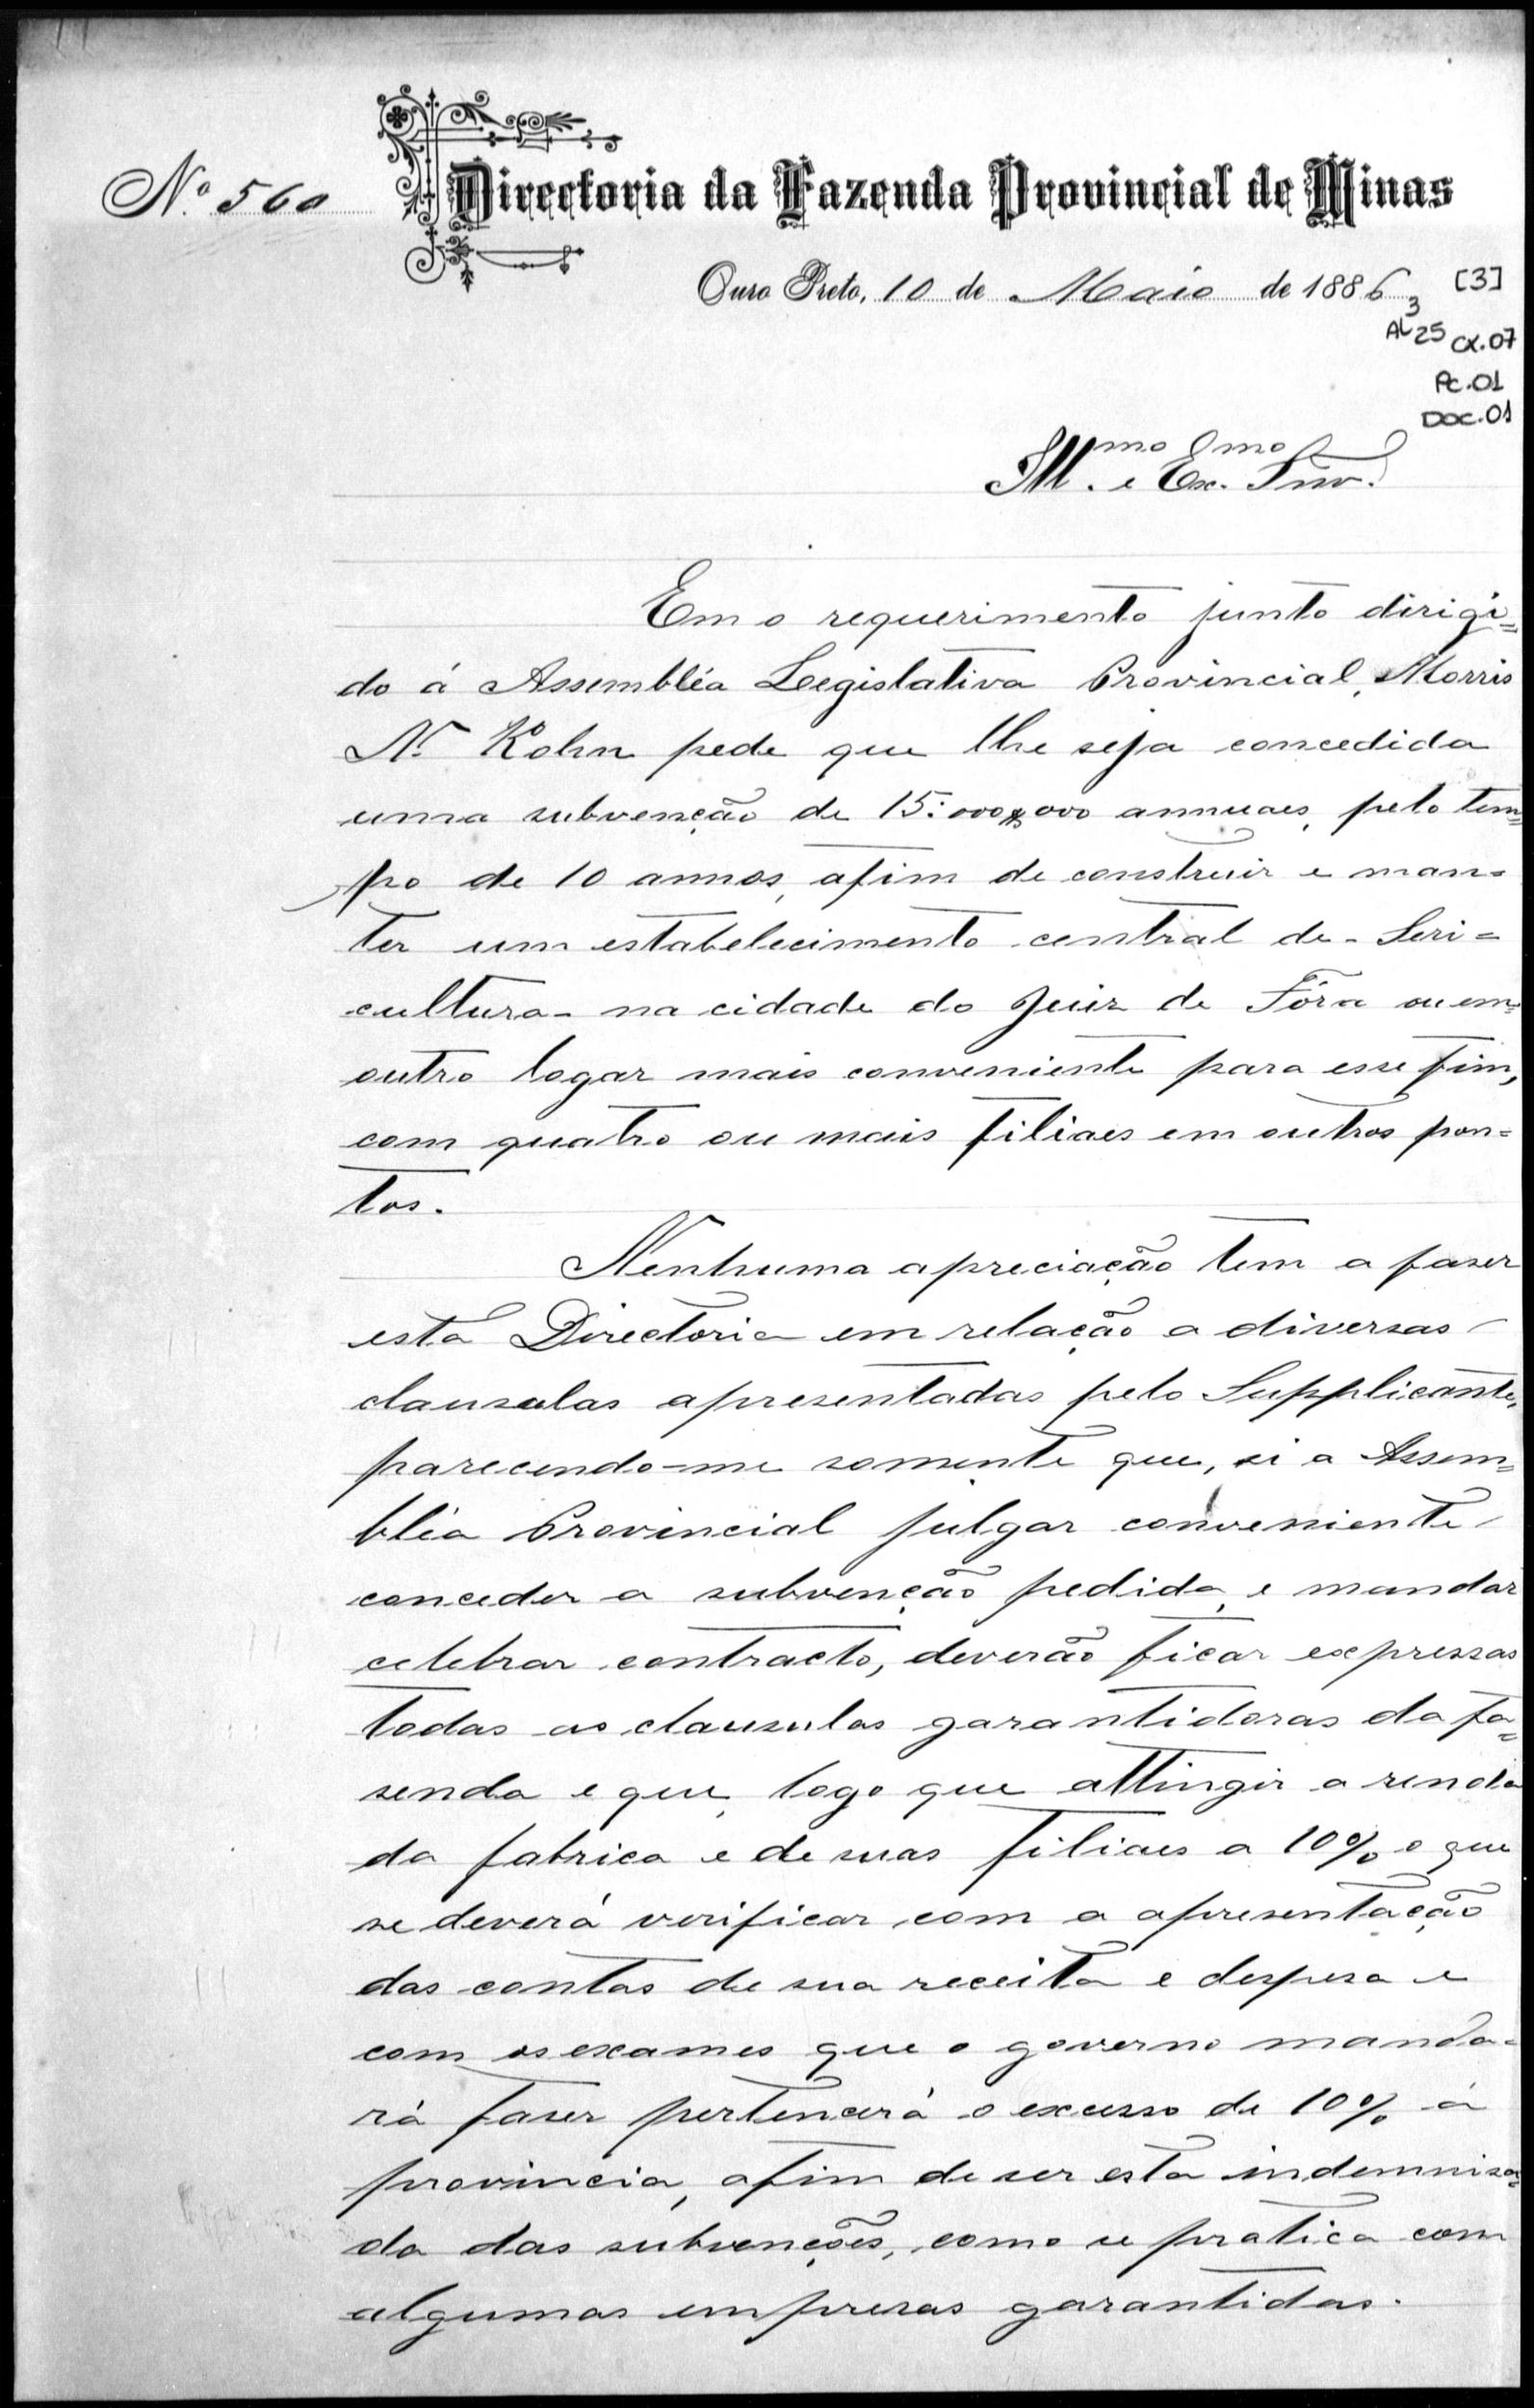 Nº 560
Directoria da Fazenda Provincial de Minas
Ouro Preto, 10 de Maio de 1886
[3]
AL 3
25 CX.07
PC.01
DOC.01
Illmo. e Exmo. Snr.
Em o requerimento junto dirigi=
do á Assembléa Legislativa Provincial, Morris
N. Kohn pede que lhe seja concedida
uma subvenção de 15:000$000 annuaes, pelo tem=
po de 10 annos, afim de construir e man=
ter um estabelecimento central de - Seri=
cultura - na cidade do Juiz de Fóra ou em
outro logar mais conveniente para esse fim,
com quatro ou mais filiaes em outros pon=
tos.
Nenhuma apreciação tem a faser
esta Directoria em relação a diversas
clausulas apresentadas pelo Supplicante,
parecendo-me somente que, si a Assem=
bléa Provincial julgar conveniente
conceder a subvenção pedida, e mandar
celebrar contracto, deverão ficar expressas
todas as clausulas garantidoras da fa=
senda e que, logo que attingir a renda
da fabrica e de suas filiaes a 10% o que
se deverá verificar com a apresentação
das contas de sua receita e despesa e
com os exames que o governo manda=
rá faser pertencerá o excesso de 10% á
provincia, afim de ser esta indemnisa=
da das subvenções, como se pratica com
algumas empresas garantidas.